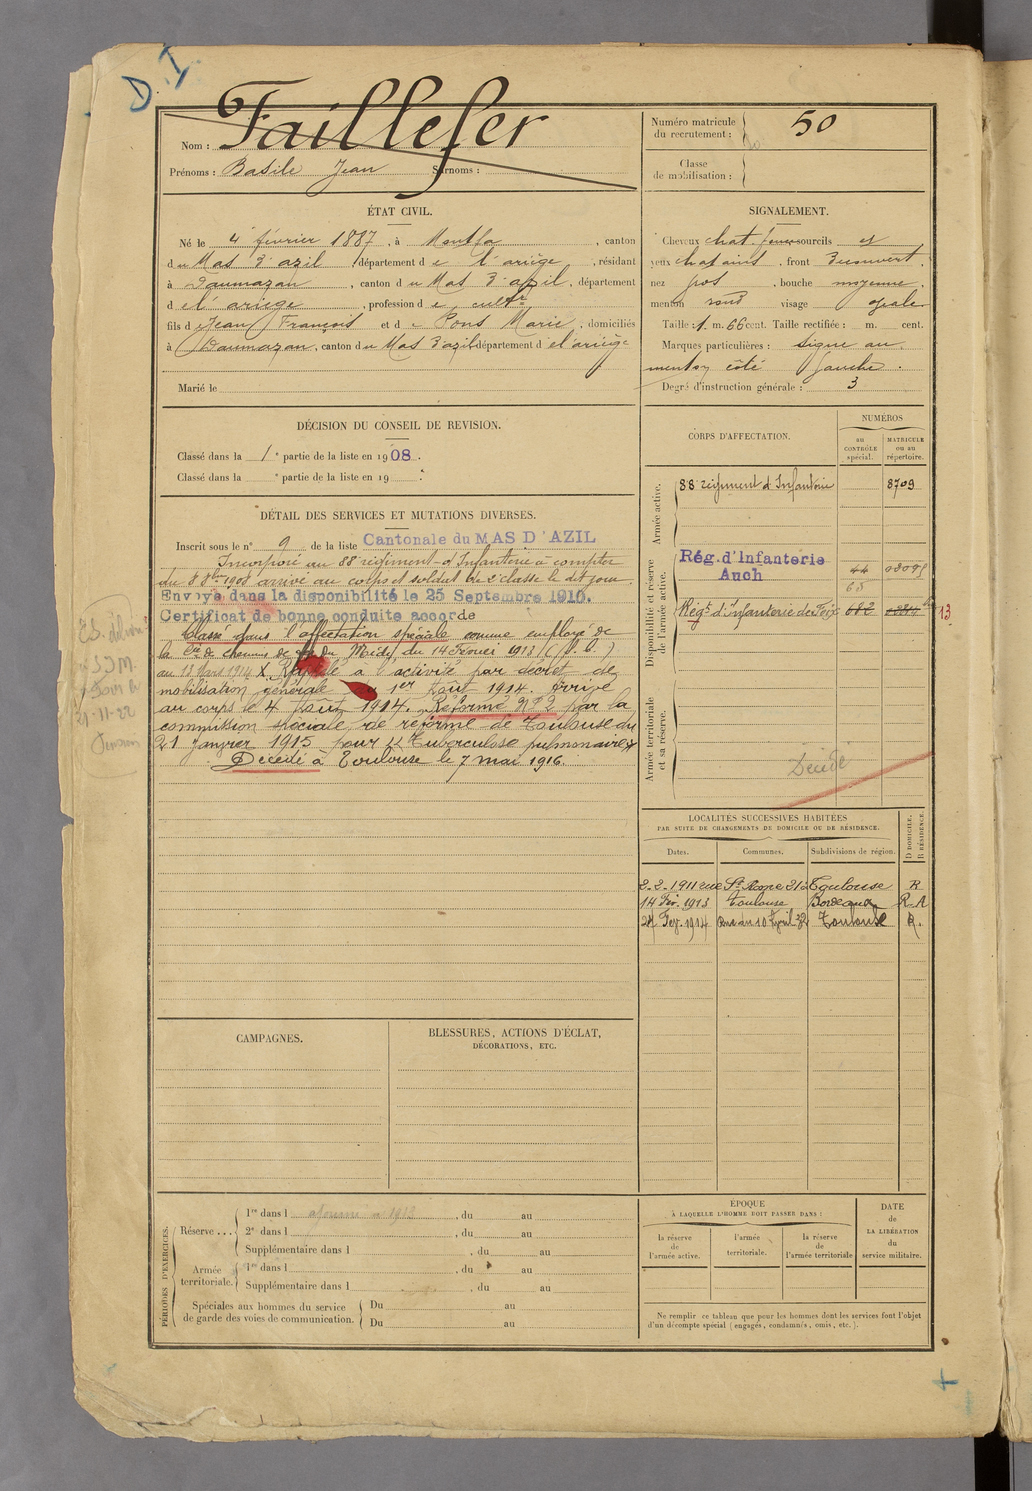 D. I.
Nom : Taillefer
Prénoms : Basile Jean Surnoms :
Numéro matricule du recrutement : 50
Classe de mobilisation :
ÉTAT CIVIL.
Né le 4 février 1887, à Montfa, canton
du Mas d'azil, département de l'ariège, résidant
à Daumazan, canton du Mas d'azil, département
de l'ariège, profession de cultr
fils de Jean François et de Pons Marie, domiciliés
à Daumazan, canton du Mas d'azil département de l'ariège
Marié le
SIGNALEMENT.
Cheveux chat. sourcils id
yeux chatains, front découvert,
nez gros, bouche moyenne,
menton rond visage ovale
Taille : 1 m. 66 cent. Taille rectifiée : m. cent.
Marques particulières : signe au
menton côté gauche.
Degré d'instruction générale : 3
DÉCISION DU CONSEIL DE REVISION.
Classé dans la 1e partie de la liste en 1908.
Classé dans la e partie de la liste en 19 .
DÉTAIL DES SERVICES ET MUTATIONS DIVERSES.
Inscrit sous le n° 9 de la liste Cantonale du MAS D'AZIL
Incorporé au 88 régiment d'Infanterie à compter
du 8 8bre 1908 arrivé au corps et soldat de 2e classe le dit jour.
Envoyé dans la disponibilité le 25 Septembre 1910.
Certificat de bonne conduite accordé
Classé dans l'affectation spéciale comme employé de
la Cie de chemins de fer du Midi, du 14 Février 1913
au 13 Mars 1914 X Rappelé à l'activité par décret de
mobilisation générale du 1er Août 1914. Arrivé
au corps le 4 Août 1914. Réformé N° 2 par la
commission spéciale de réforme de Toulouse du
21 janvier 1915 pour "Tuberculose pulmonaire"
Décédé à Toulouse le 7 mai 1916.
CORPS D'AFFECTATION.
NUMÉROS
au CONTRÔLE spécial.
MATRICULE ou au répertoire.
Armée active.
88 régiment d'Infanterie 8709
Disponibilité et réserve de l'armée active.
Rég. d'Infanterie
Auch 44
68
Régt d'Infanterie de Foix 13
Armée territoriale et sa réserve.
Décédé
LOCALITÉS SUCCESSIVES HABITÉES
PAR SUITE DE CHANGEMENTS DE DOMICILE OU DE RÉSIDENCE.
Dates. Communes. Subdivisions de région. D DOMICILE. R RÉSIDENCE.
2-2-1911 rue St Toulouse R
14 Fév. 1913 Toulouse Bordeaux R-A
27 Fév. 1914 Rue du 10 Avril 32 Toulouse R.
CAMPAGNES.
BLESSURES, ACTIONS D'ÉCLAT,
DÉCORATIONS, ETC.
PÉRIODES D'EXERCICES.
Réserve ...
1re dans l ajourné à 1913, du au
2e dans l , du au
Supplémentaire dans l , du au
Armée territoriale.
1re dans l , du au
Supplémentaire dans l , du au
Spéciales aux hommes du service de garde des voies de communication.
Du au
Du au
ÉPOQUE
À LAQUELLE L'HOMME DOIT PASSER DANS :
la réserve de l'armée active.
l'armée territoriale.
la réserve de l'armée territoriale
DATE
de
LA LIBÉRATION
du
service militaire.
Ne remplir ce tableau que pour les hommes dont les services font l'objet
d'un décompte spécial (engagés, condamnés, omis, etc.).